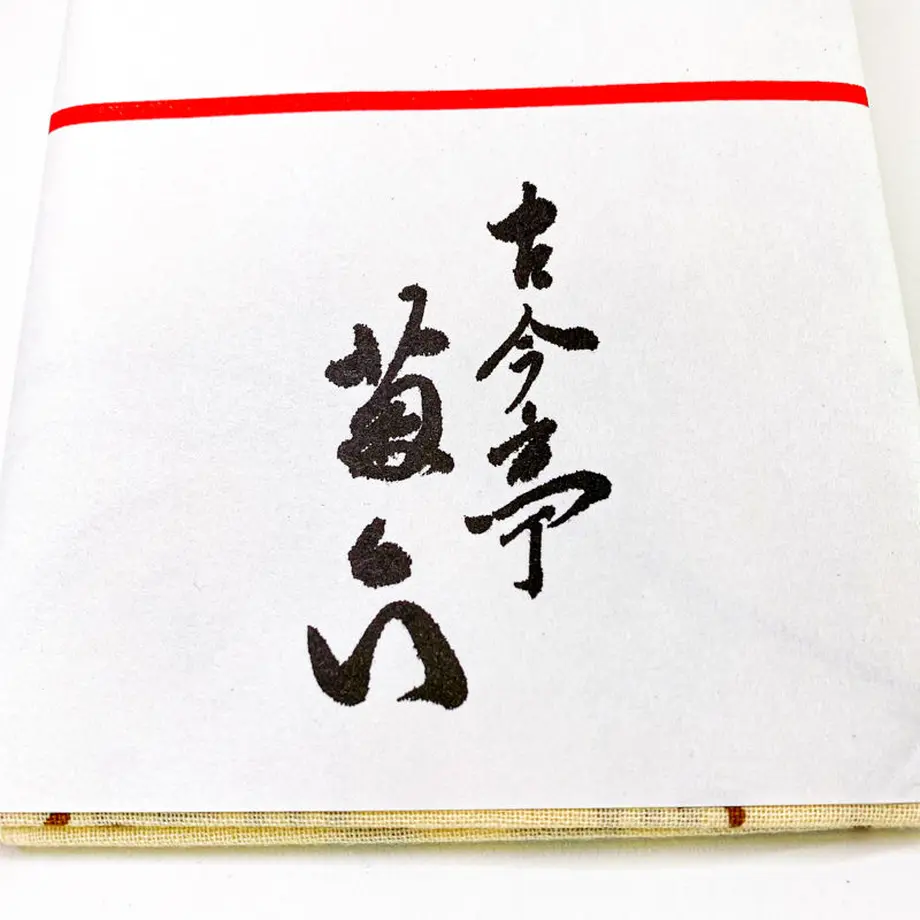 古今亭
菊六